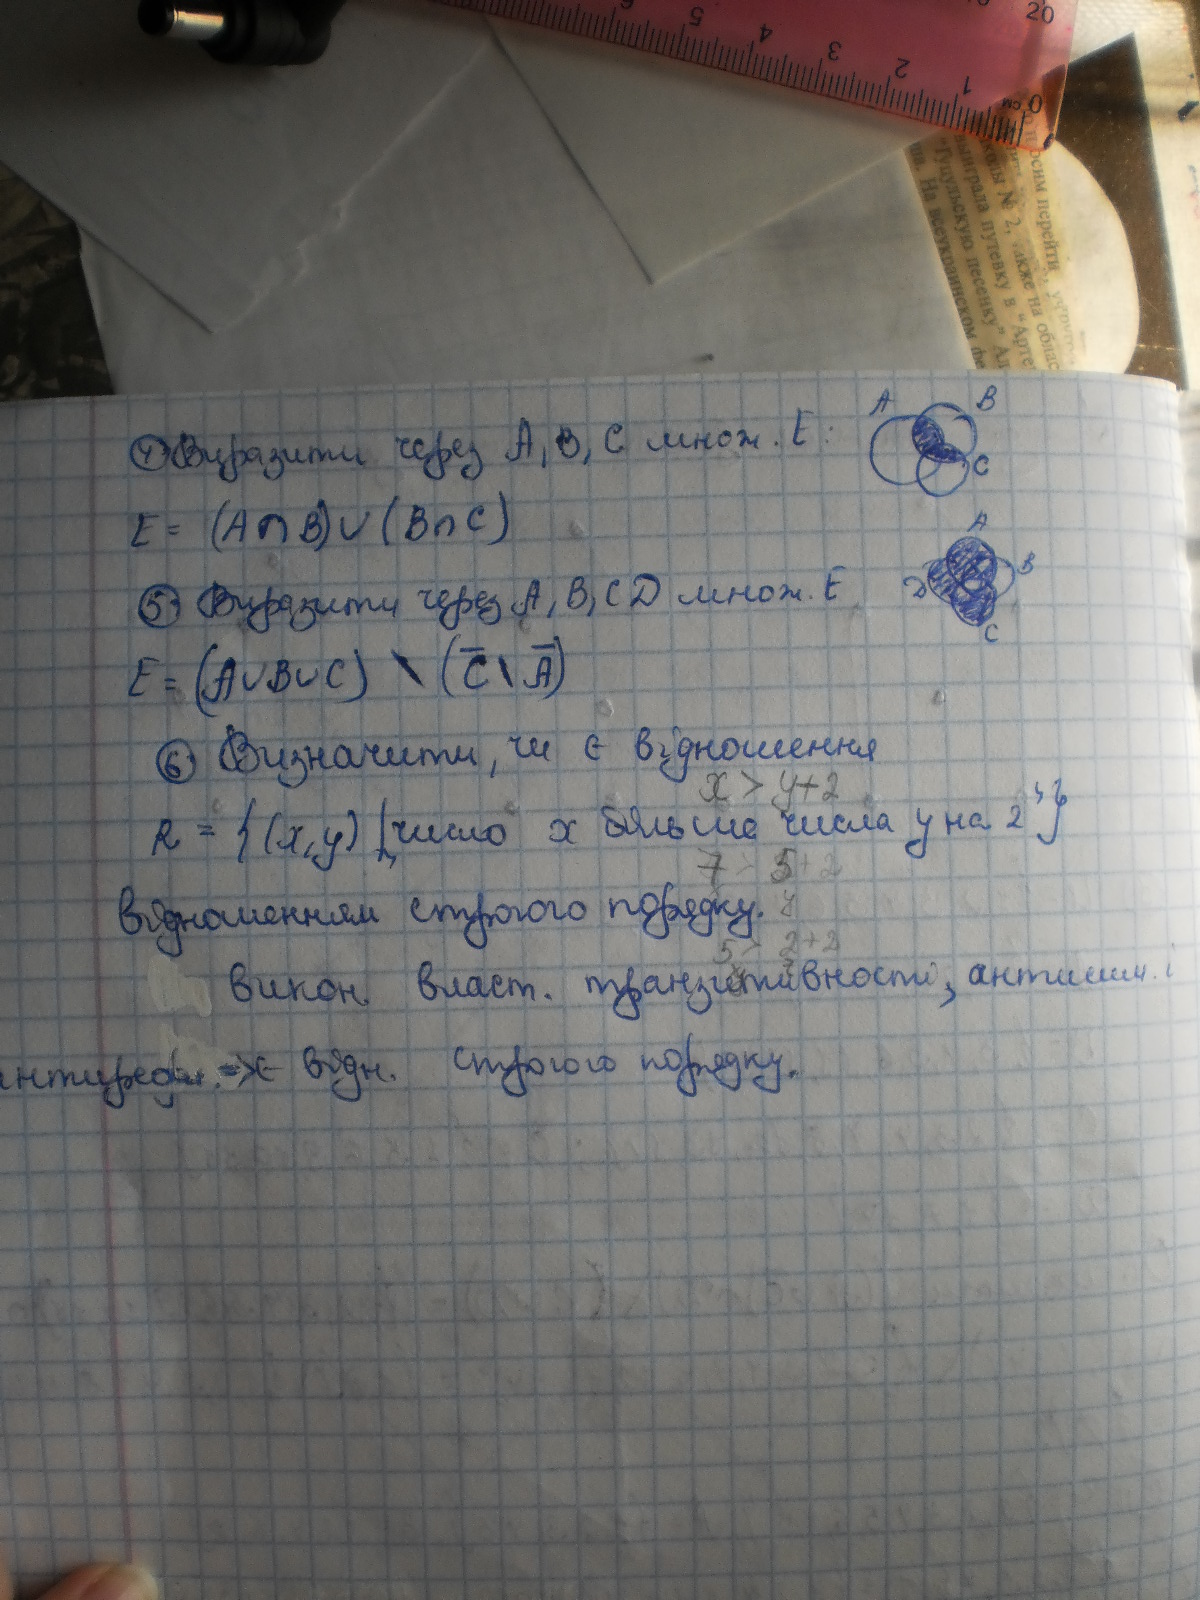 20
6 5 4 3 2 1 0 см
осим перейти
колы № 2, также на облас
выиграла путевку в "Арте
"Гуцульскую песенку" Ал
На всеукраинском
④ Виразити через A, B, C множ. E:
A B C
E = (A∩B)∪(B∩C)
⑤ Виразити через A, B, C D множ. E
A B C D
E = (A∪B∪C) \ (C̅ \ A̅)
⑥ Визначити, чи є відношення
x > y+2
R = {(x,y) | число x більше числа y на 2"}
7 > 5+2
y
відношенням строгого порядку.
5 > 2+2
викон. власт. транзитивності, антисим. і
антирефл. => є відн. строгого порядку.